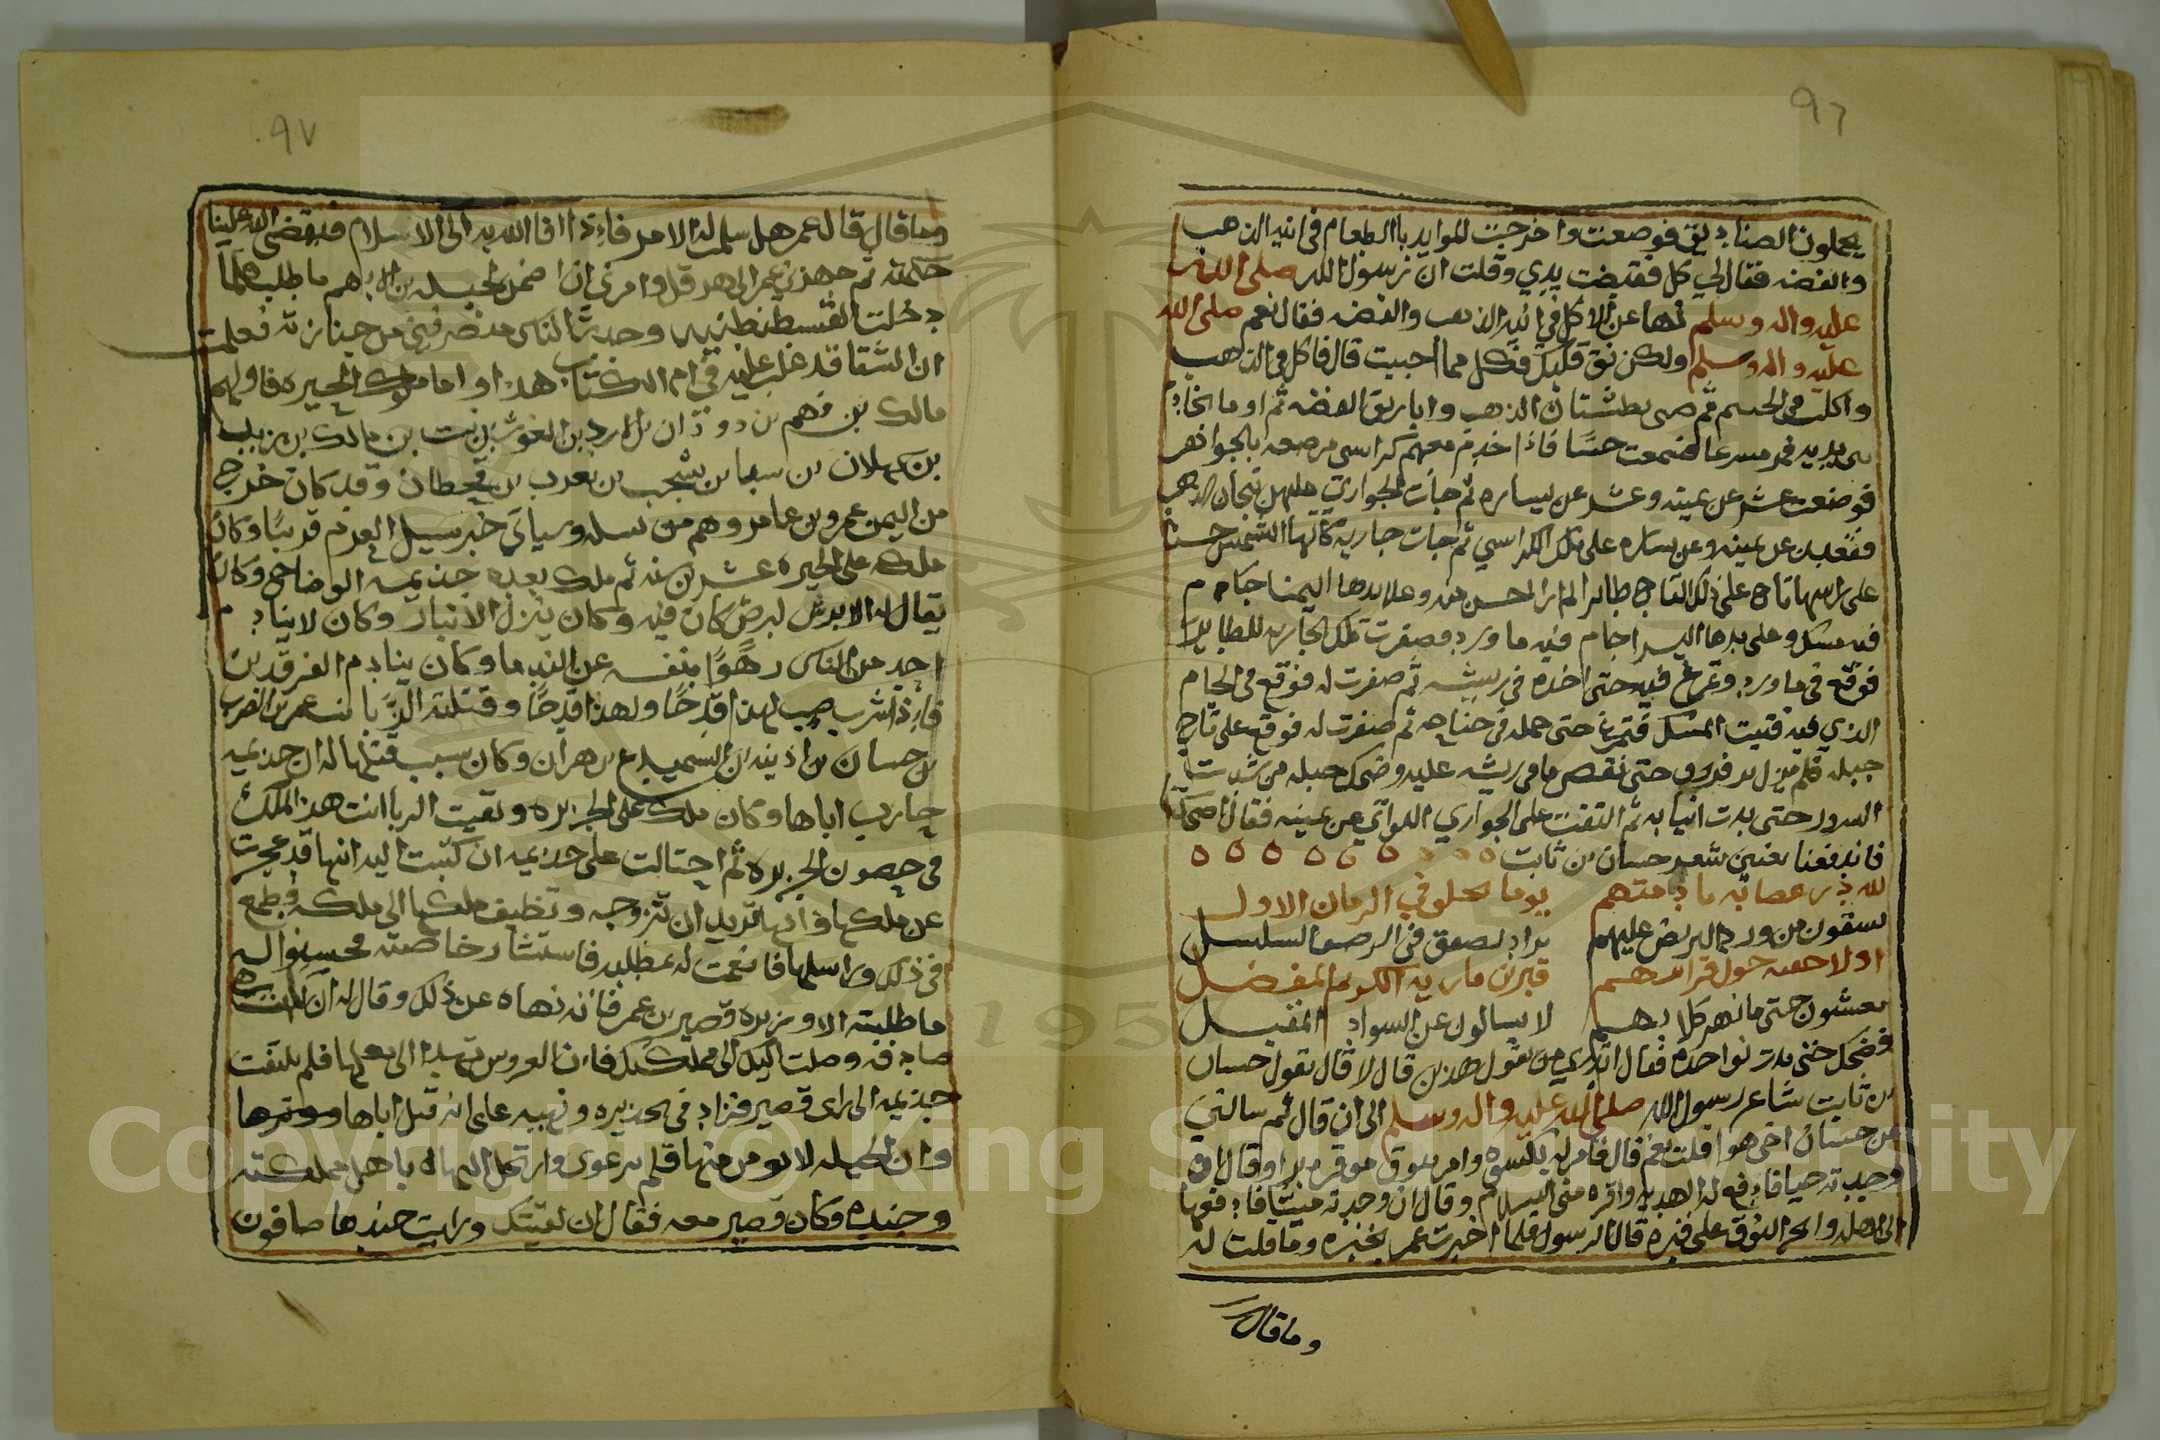 ٩٦
يحملون الصناديق فوضعت واخرجت الموايد باالطعام في انية الذهب
والفضه فقال لي كل فقبضت يدي وقلت ان رسول الله صلى الله
عليه واله وسلم نها عن الاكل في انية الذهب والفضه فقال نعم صلى الله
عليه واله وسلم ولكن نق قلبك وكل مما احببت قال فاكل في الذهب
واكلت في الخشب ثم بطشتان الذهب واباريق الفضه ثم اوما الخادم
بين يديه فمر مسرعا فسمعت حسا فاذا خدم معهم كراسي مرصعه بالجواهر
فوضعت عشر عن يمينه وعشر عن يساره ثم جات الجواري عليهن تيجان الذهب
فقعدن عن يمينه وعن يساره على تلك الكراسي ثم جات جارية كانها الشمس حسنا
على راسها تاج على ذلك التاج طائر لم ار احسن منه وعلى يدها اليمنا جام
فيه مسك وعلى يدها اليسرا جام فيه ماورد وصفرت تلك الجاريه للطائر
فوقع في ماورد وتمرغ فيه حتى اخذه في ريشه ثم صفرت له فوقع في الجام
الذي فيه فتيت المسك فتمرغ حتى حمله في جناحه ثم صفرت له فوقع على تاج
جبله فلم يزل يرفرف حتى نفض ما في ريشه عليه وضحك جبله من شدت
السرور حتى بدت انيابه ثم التفت على الجواري اللواتي عن يمينه فقال اضحكننا
فاندفعنا يغنين بشعر حسان بن ثابت
لله در عصابة نادمتهم يوما بجلق في الزمان الاول
يسقون من ورد البريص عليهم بردا يصفق في الرحيق السلسل
اولاد جفنه حول قبر ابيهم قبر بن ماريه الكريم المفضل
يغشون حتى ما تهر كلابهم لا يسالون عن السواد المقبل
فضحك حتى بدت نواجده فقال اتدري من يقول هذ قال لا قال يقول حسان
بن ثابت شاعر رسول الله صلى الله عليه واله وسلم الى ان قال ثم سالني
عن حسان احي هو قلت نعم قال فامر له بكسوه وامر بنوق موقره برا وقال ان
وجدته حيا فادفع له الهديه واقره مني السلام وقال ان وجدته ميتا فادفعها
الى اهله وانحر النوق على قبره قال الرسول فلما اخبرت عمر بخبره وما قلت له
وما قال
٩٧
وما قال قال عمر هل سلمت له الامر فاذا افا الله به الى الاسلام فيقضي الله علينا
حكمته ثم جهزني عمر الى هرقل وامرني ان اضمن لجبله بن الايهم ما طلب فلما
دخلت القسطنطنيه وجدت الناس منصرفين من جنازته فعلمت
ان الشقا قد غلب عليه في ام الكتاب هذا واما ملوك الحيره فاولهم
مالك بن فهم بن دوذان بن الازد بن الغوث بن نبت بن مالك بن زيد
بن كهلان بن سبا بن يشجب بن يعرب بن قحطان وقد كان خرج
من اليمن عمرو بن عامر وهم من نسله وسياتي خبر سيل العرم قريبا وكان
ملك على الحيره عشرين سنه ثم ملك بعده جذيمه الوضاحي وكان
يقال له الابرش لبرص كان فيه وكان ينزل الانبار وكان لا ينادم
احد من الناس زهوا بنفسه عن الندما وكان ينادم الفرقدين
فاذا شرب صب لهذا قدحا ولهذا قدحا وقتلته الزبا بنت عمر بن الضرب
بن حسان بن اذينه بن السميدع بن هران وكان سبب قتلها له ان جذيمه
حارب اباها وكان ملك على الجزيره وبقيت الزبا انت هذ الملك
في حصون الجزيره ثم احتالت على جذيمه ان كتبت اليه انها قد عجزت
عن ملكها وانها تريد ان تتزوجه وتضيف ملكها الى ملكه فطمع
في ذلك وراسلها فانعمت له بمطلبه فاستشار خاصته فحسنوا له
ما طلبته الا وزيره قصير بن عمر فانه نهاه عن ذلك وقال له ان كانت
صادقه وصلت اليك الى مملكتك فان العروس تهدا الى بعلها فلم يلتفت
جذيمه الى راى قصير فزاد في تحذيره ونبهه على انه قتل اباها ووترها
وان الحيله لا يومن منها فلم يرعوي وارتحل اليها باهل مملكته
وجنده وكان قصير معه فقال ان لقيتك ورايت جندها صافون
Copyright © King Saud University
1957